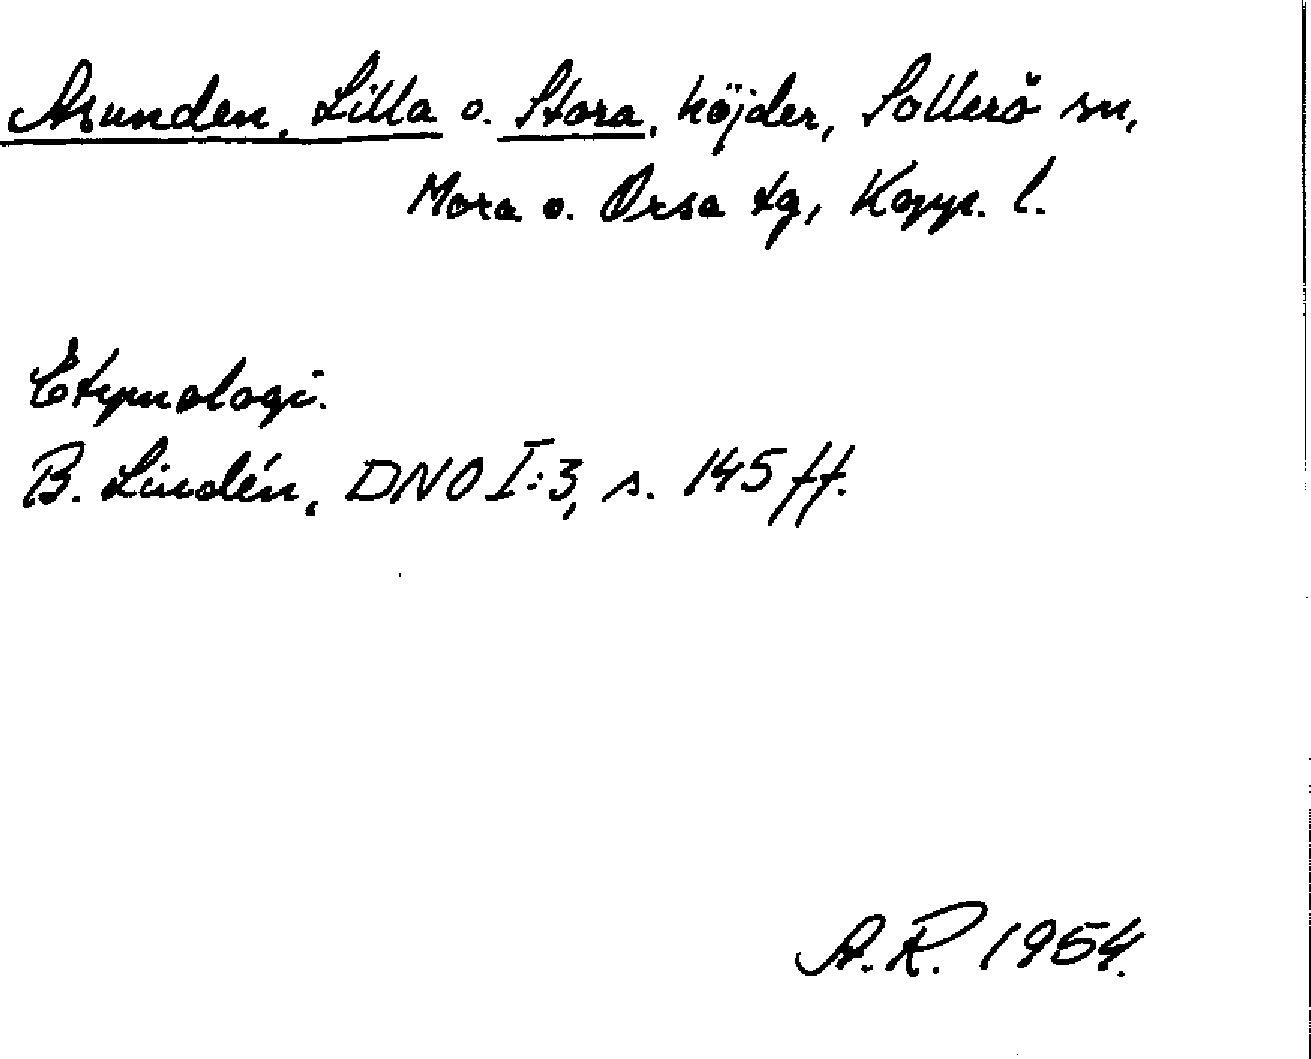 Asunden, Lilla o. Stora, höjder, Sollerö sn,
Mora o. Orsa tg, Kopp. l.
Etymologi.
B. Lindén, DNO I:3, s. 145 ff.
A.R. 1954.